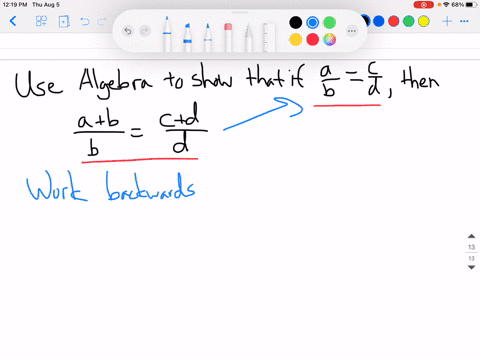 12:19 PM Thu Aug 5
68%
Use Algebra to show that if a/b = c/d, then
(a+b)/b = (c+d)/d
Work backwards
13
13